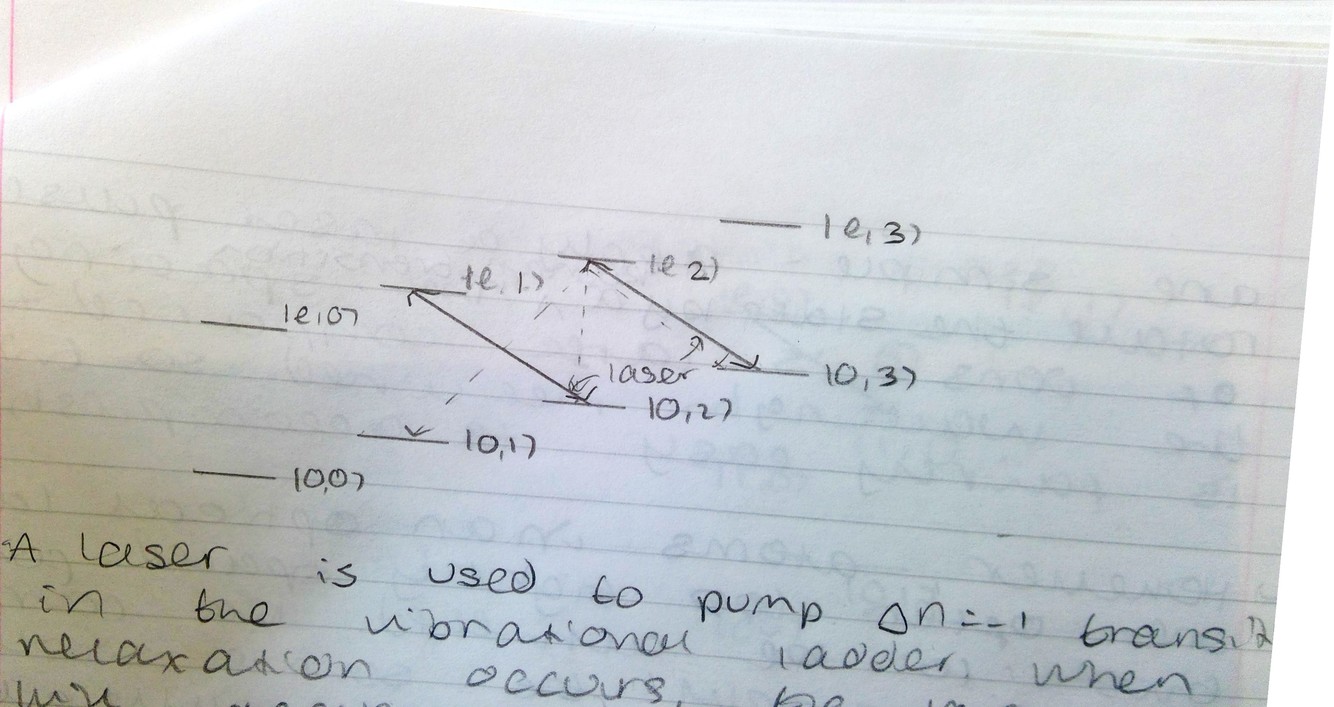 |e,3⟩
|e 2⟩
|e,1⟩
|e,0⟩
laser
|0,3⟩
|0,2⟩
|0,1⟩
|0,0⟩
A laser is used to pump Δn=-1
in the vibrational ladder, when
relaxation occurs,